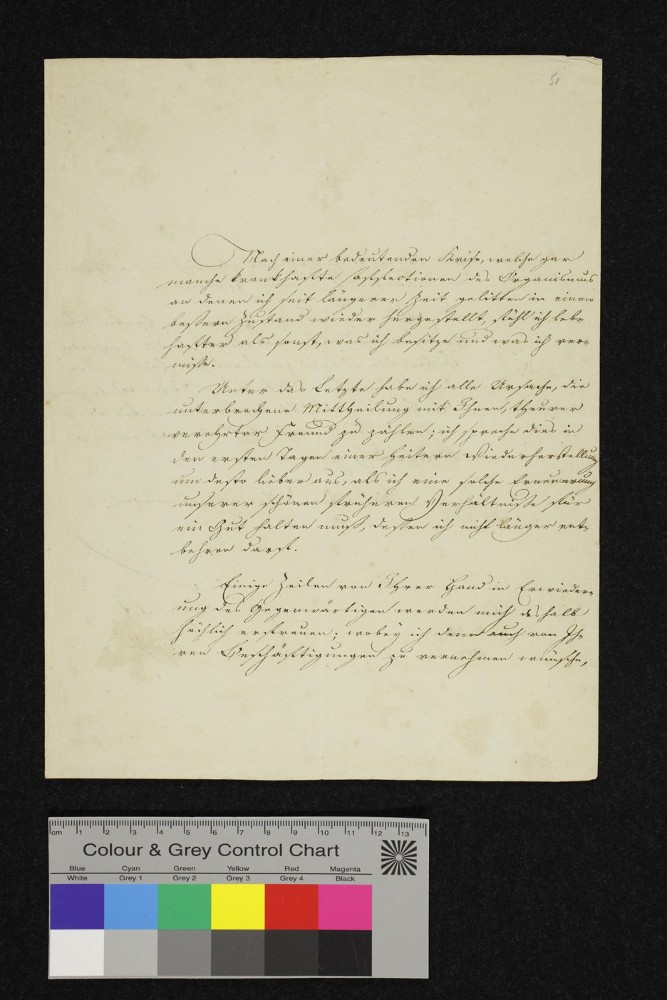 51
Nach einer bedeutenden Krise, welche gar
manche krankhafte Affectionen des Organismus
an denen ich seit längerer Zeit gelitten in einen
bessern Zustand wieder hergestellt, fühl' ich leb-
hafter als sonst, was ich besitze und was ich ver-
misse.
Unter das Letzte habe ich alle Ursache, die
unterbrochene Mittheilung mit Ihnen, theurer
verehrter Freund zu zählen; ich spreche dies in
den ersten Tagen einer heitern Wiederherstellung
um desto lieber aus, als ich eine solche Erneuerung
unserer schönen früheren Verhältnisse für
ein Gut halten muß, dessen ich nicht länger ent-
behren darf.
Einige Zeilen von Ihrer Hand in Erwieder-
ung des Gegenwärtigen werden mich deshalb
höchlich erfreuen; wobey ich denn auch von Ih-
ren Beschäftigungen zu vernehmen wünsche,
cm 1 2 3 4 5 6 7 8 9 10 11 12 13
Colour & Grey Control Chart
Blue Cyan Green Yellow Red Magenta
White Grey 1 Grey 2 Grey 3 Grey 4 Black